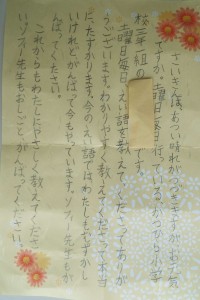 さいきんは、あつい晴れがつづきますがお元気
ですか。土曜日毎日かよっている小学
校三年組の です。
土曜日毎日、えい語を教えてくださってありが
うございます。わかりやすく教えてくださって本当
に、たすかります。今のえい語ではわたしもむずかし
いけれどがんばって今もやっています。ゾフィー先生もが
んばってください。
これからもわたしにやさしく教えてくださ
い。ゾフィー先生もおしごと、がんばってください。